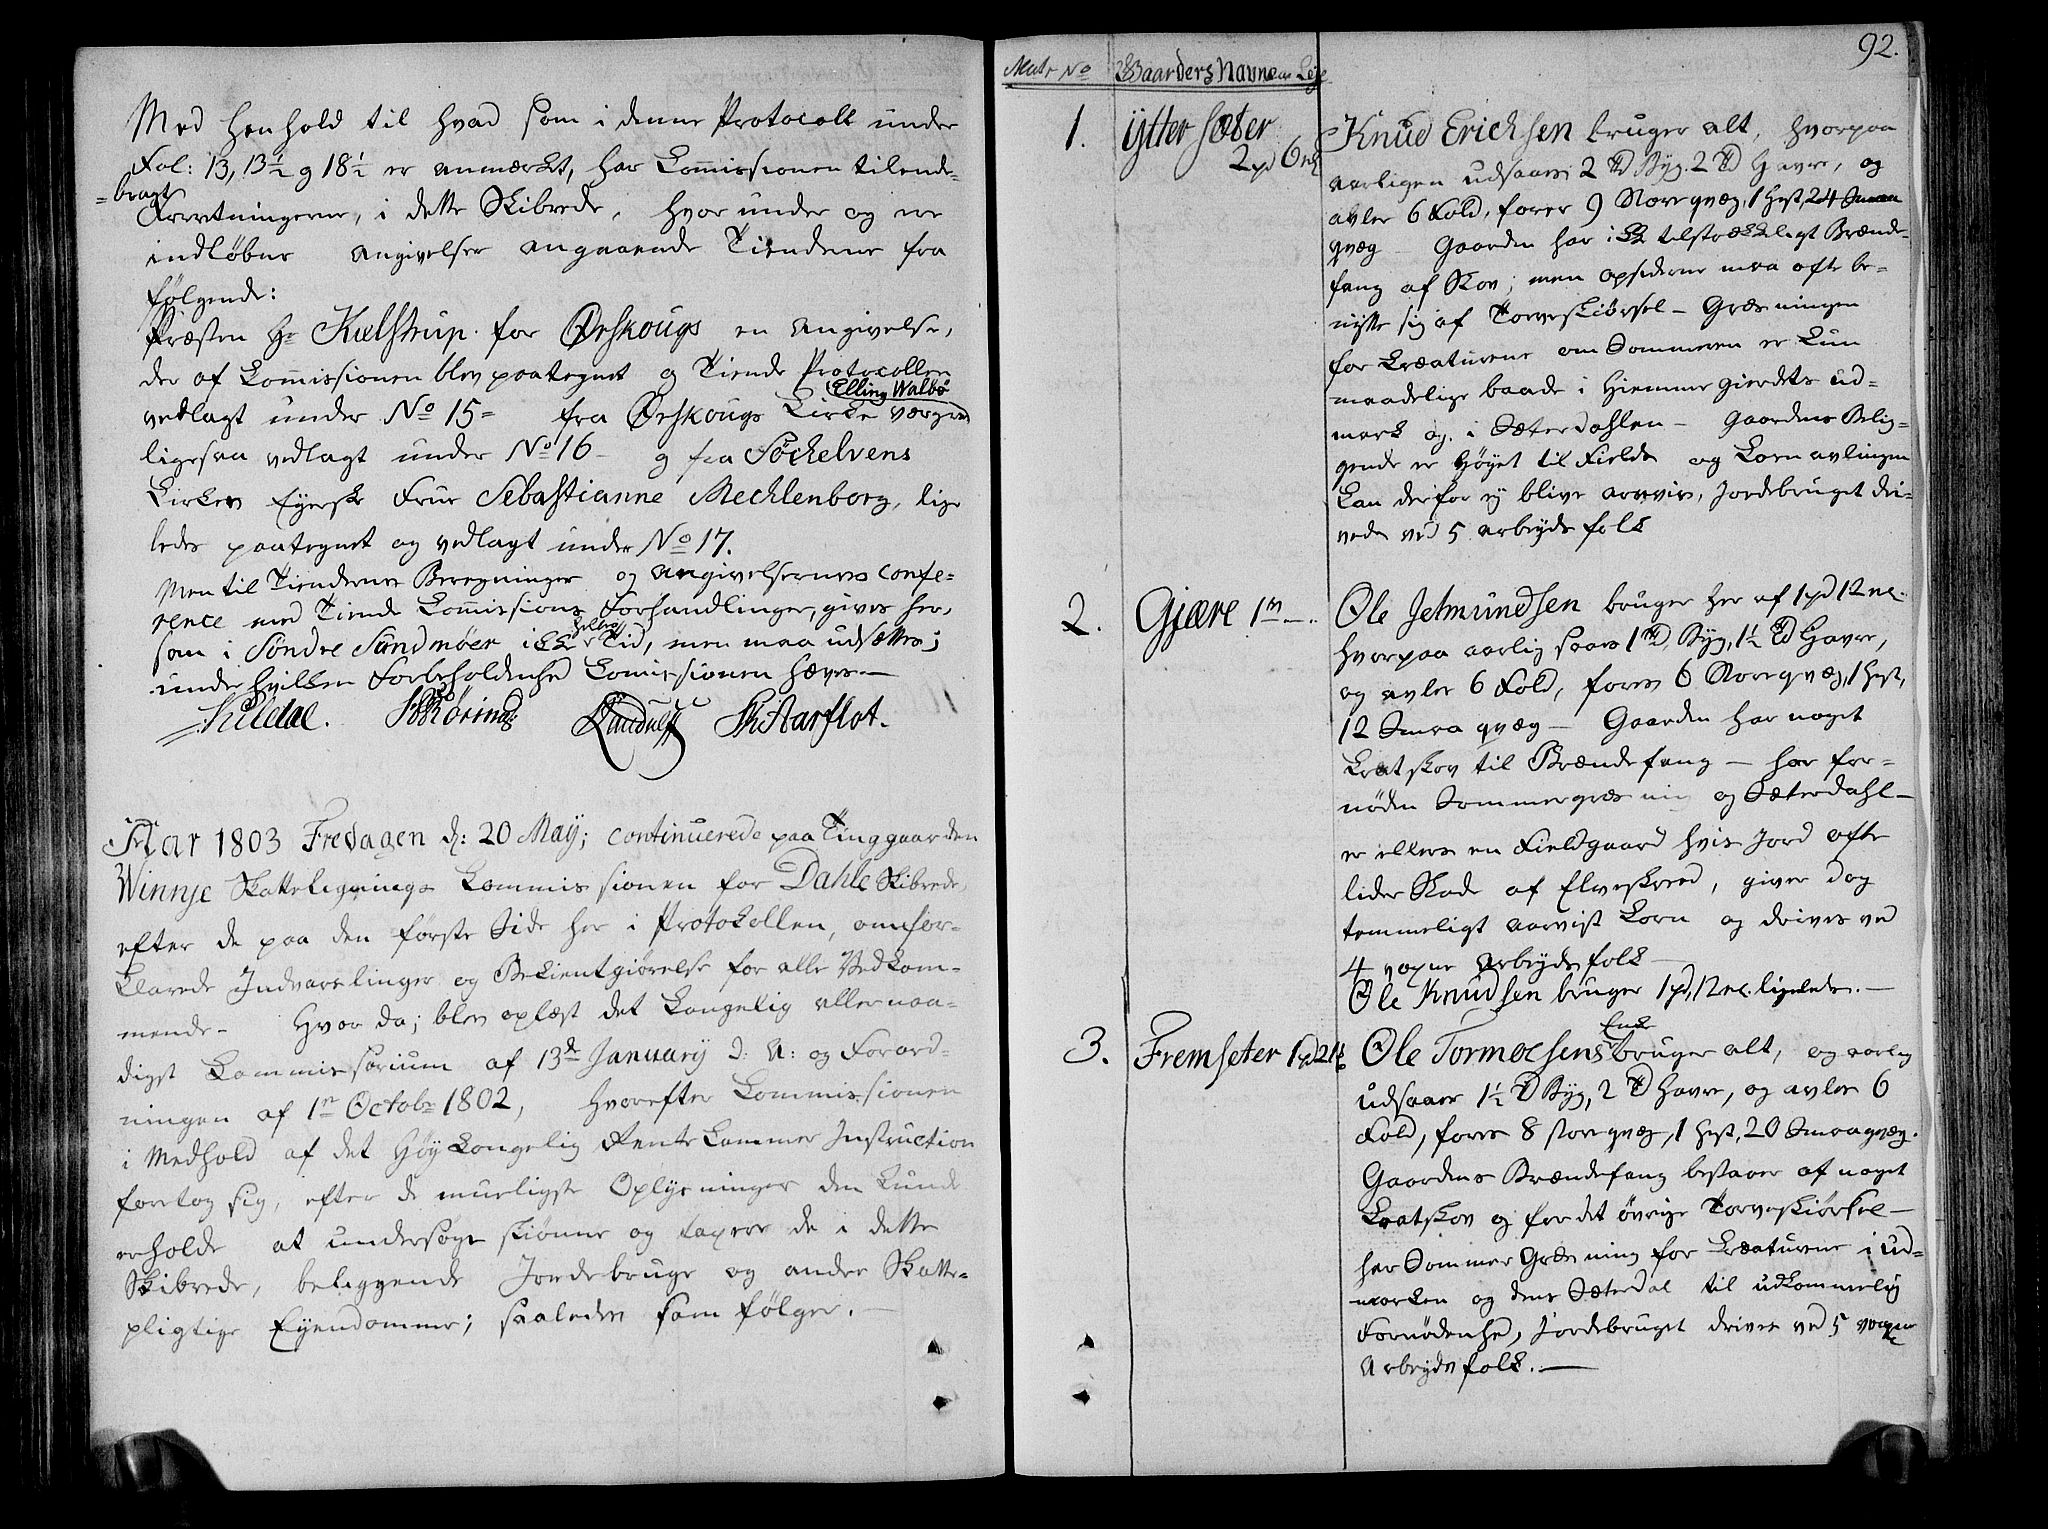 Med Henhold til hvad som i denne Protocoll under
Fol: 13, 13½ og 18½ er anmærket, har Commissionen tilende-
=bragt
Forretningerne, i dette Skibrede, hvorunder og ere
indløbne Angivelser angaaende Tienderne fra
følgende:
Præsten Hr Kielstrup for Ørskougs en Angivelse,
der af Commissionen blev paategnet og Tiende Protocollen
Elling Walbø
vedlagt under No 15= fra Ørskougs Kirke værge
ligesaa vedlagt under No 16 – og fra Söckelvens
Kirkes Eyerske Frue Sebastianne Mechlenborg, lige
ledes paategnet og vedlagt under No 17.
Men til Tiendernes Beregninger og Angivelsernes Confe-
rence med Tiende Commissions Forhandlinger, gives her,
som i Søndre Sundmøer ikke heller Tid, men maa udsættes;
under hvilken Forbeholdenhed Commissionen hæves. –
Kildal. Landulff Aarflot.
Aar 1803 Fredagen d: 20 May; Continuerede paa Tinggaarden
Winnje Skattelignings Commissionen for Dahle Skibrede,
efter de paa den første Side her i Protokollen, omfor-
klarede Indvarslinger og Bekientgiørelse for alle Vedkom-
mende – Hvor da; blev oplæst det Kongelig allernaa-
digst Commissorium af 13de January d: A: og Forord-
ningen af 1n Octobr 1802, hvorefter Commissionen
i Medhold af det Høy Kongelig Rente Kammer Instruction
foretog sig, efter de mueligste Oplysninger den kunde
erholde at undersøge skiønne og taxere de i dette
Skibrede, beliggende Jordebruge og andre Skatte-
pligtige Eyendomme; saaledes som følger. –
92.
Matr No Gaardernes Navne
1. Ytter Sæter
2 pd 6 mk
Knud Erichsen bruger alt, hvorpaa
aarligen udsaaes 2 Td Byg. 2 Td Havre, og
avler 6 Fold, foder 9 Store qvæg, 1 Hest, 24 Smaa
qvæg – Gaarden har ikke tilstrækkeligt Brænde-
fang af Skov; men opsidderne maa ofte be-
nytte sig af Torveskiørsel – Græsningen
for Creaturene om Sommeren er kun
maadelige baade i Hiemmegierdets ud-
mark og i Sæterdahlen – Gaardens Belig-
gende er høyt til Fields og Korn avlingen
kan derfor ey blive aarvis, Jordebruget dri-
ves ved 5 arbeyds folk
2. Gjære 1 –
Ole Jetmundsen bruger her af 1 pd 12 mk.
hvorpaa aarlig saaes 1 Td Byg, 1½ Td Havre,
og avler 6 Fold, foder 6 Store qvæg, 1 Hest,
12 Smaa qvæg – Gaarden har noget
Kratskov til Brændefang – har for-
nøden Sommergræsning og Sæterdahl –
er ellers en Fieldgaard hvis Jord ofte
lider Skade af Elveskred, giver dog
temmeligt aarvist Korn og drives ved
4 voxne Arbeydsfolk –
Ole Knudsen bruger 1 pd, 12 mk. ligeledes. –
3. Fremseter 1 pd 21
Enke
Ole Tormoesens bruger alt, og aarlig
udsaaes 1½ Td Byg, 2 Td Havre, og avler 6
Fold, foder 8 store qvæg, 1 Hest, 20 Smaaqvæg.
Gaardens Brændefang bestaaer af noget
Kratskov og for det øvrige Torveskiørsel –
har Sommer Græsning for Creaturene i ud-
marken og dens Sæterdal til udkommelig
Fornødenhed, Jordebruget drives ved 5 voxne
Arbeydsfolk. –